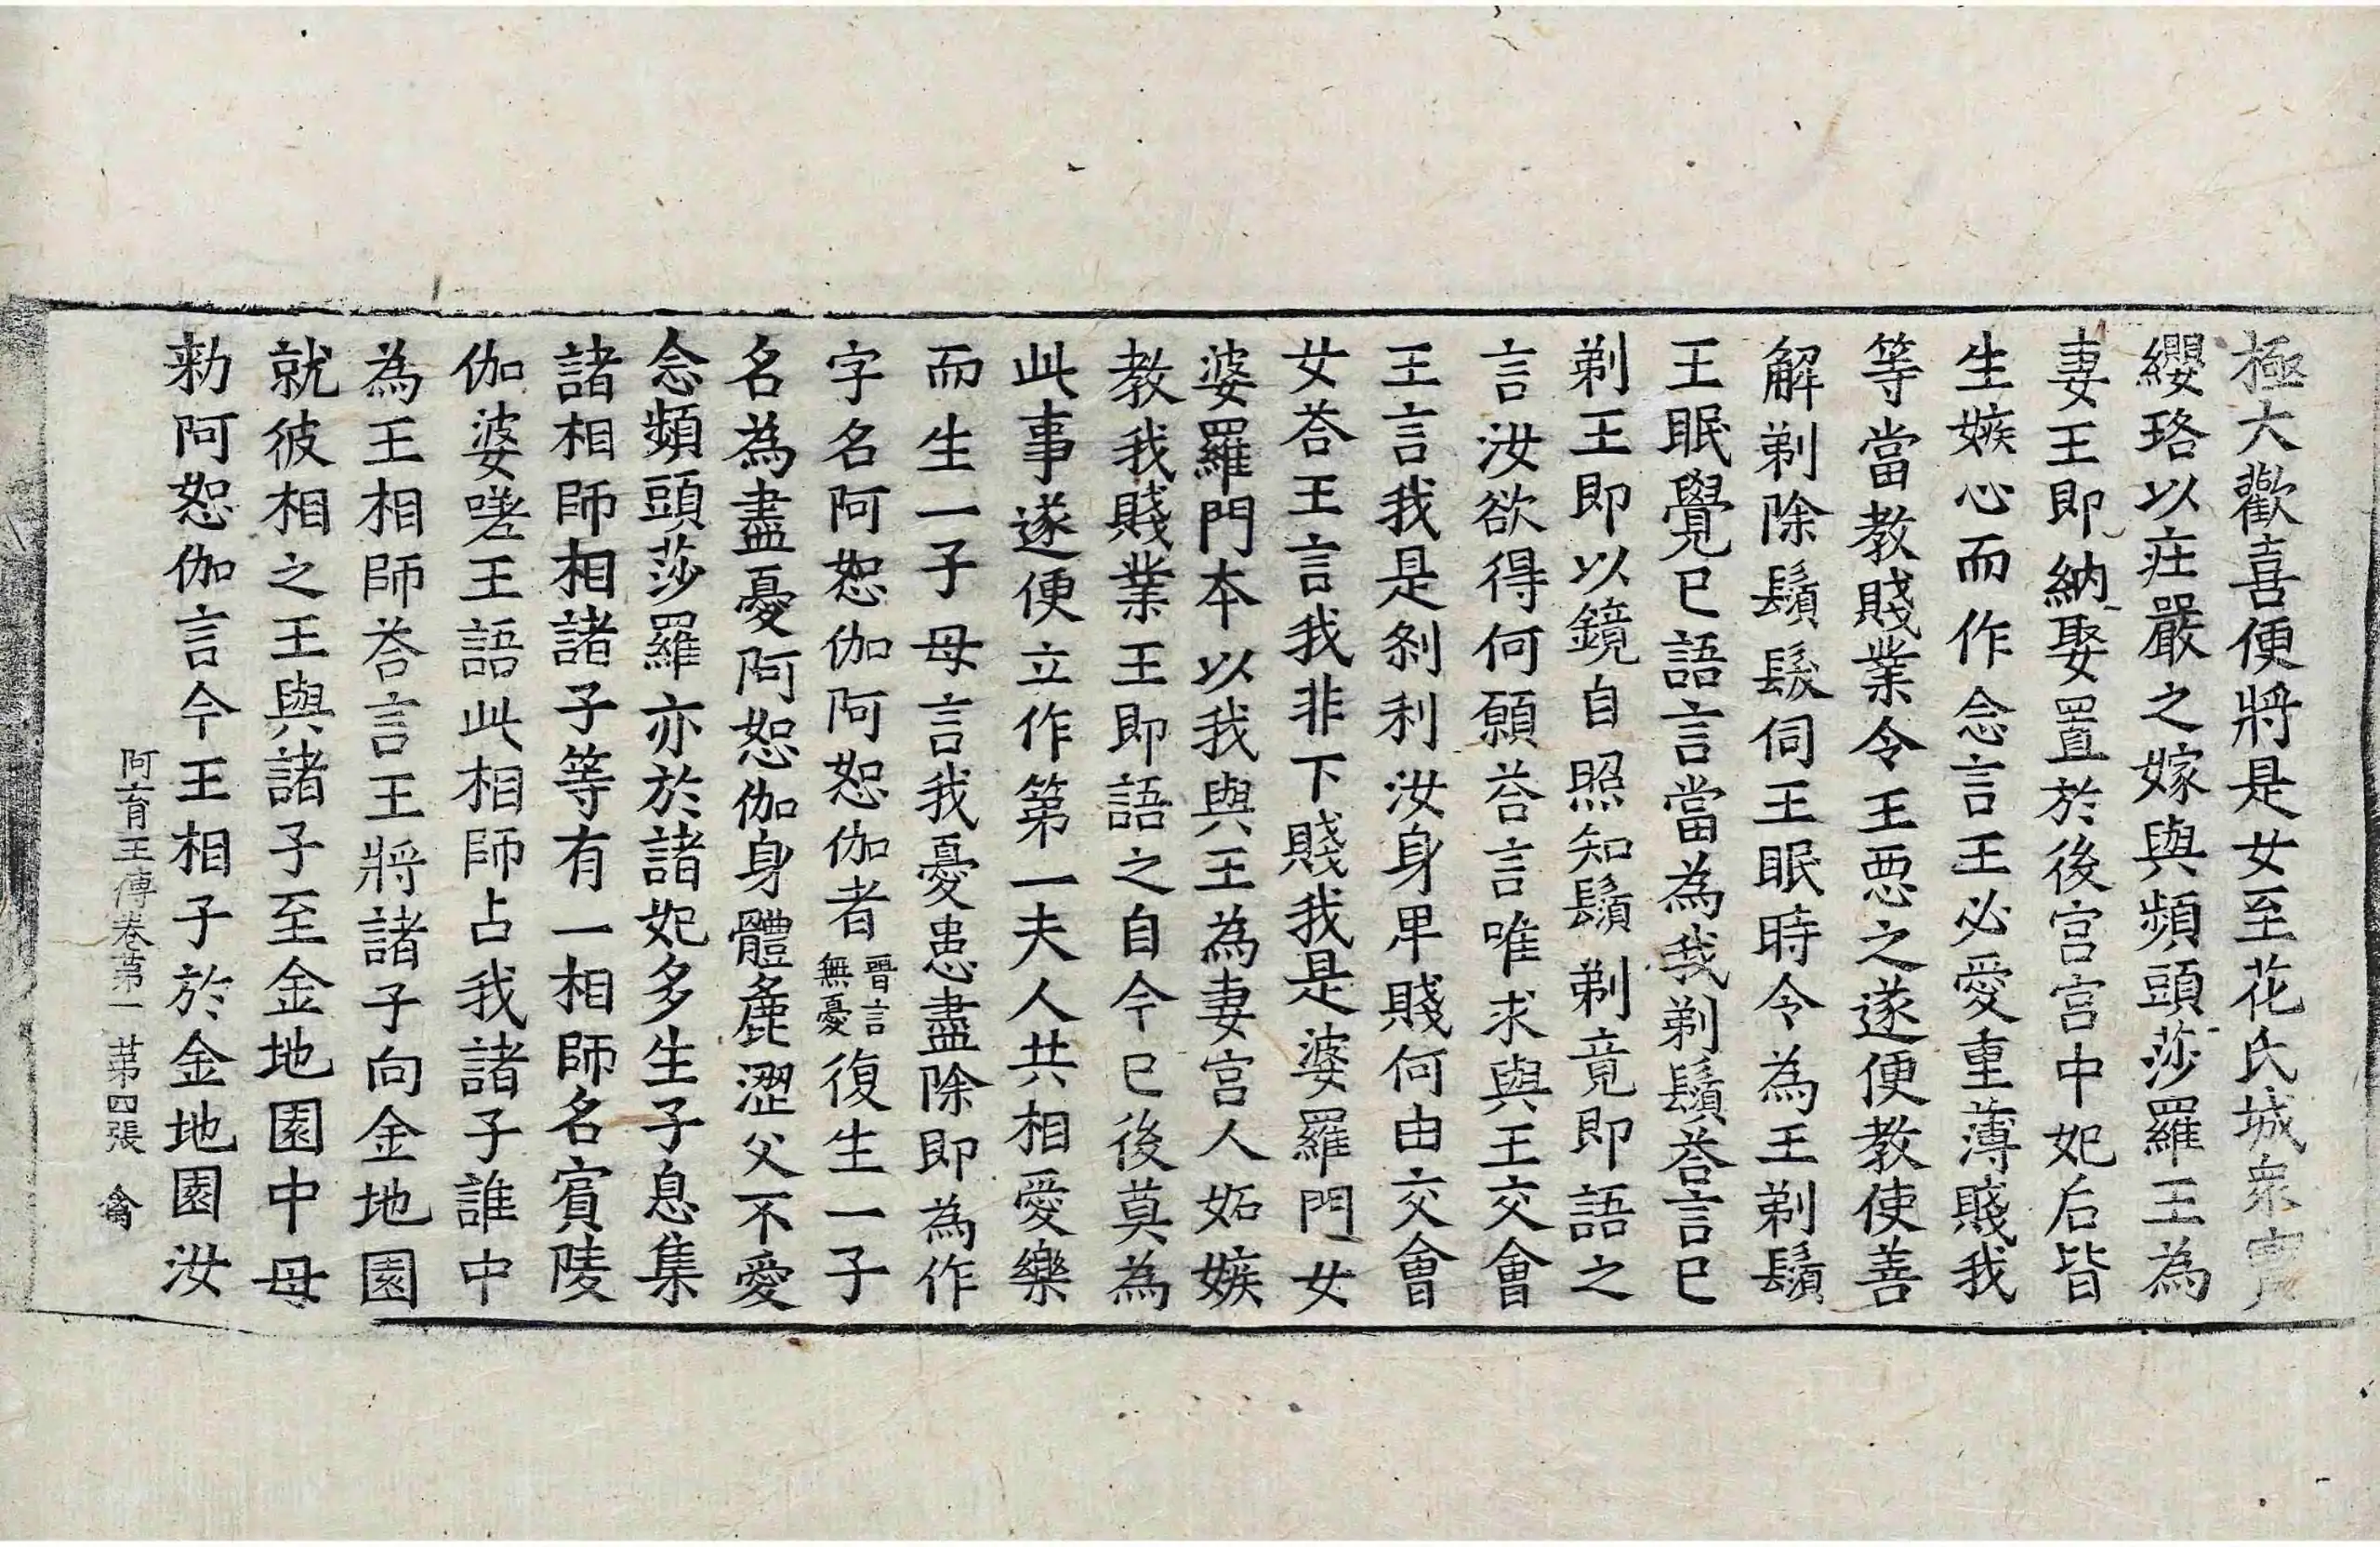 極大歡喜便將是女至花氏城衆寶
纓珞以疘嚴之嫁與頻頭莎羅王為
妻王即納娶置於後宮宮中妃后皆
生嫉心而作念言王必愛重薄賤我
等當教賤業令王惡之遂便教使善
解剃除鬚髮伺王眠時令為王剃鬚
王眠覺已語言當為我剃鬚荅言已
剃王即以鏡自照知鬚剃竟即語之
言汝欲得何願荅言唯求與王交會
王言我是剎利汝身卑賤何由交會
女荅王言我非下賤我是婆羅門女
婆羅門本以我與王為妻宮人妬嫉
教我賤業王即語之自今已後莫為
此事遂便立作第一夫人共相愛樂
而生一子母言我憂患盡除即為作
字名阿恕伽阿恕伽者晉言無憂復生一子
名為盡憂阿恕伽身體麁澀父不愛
念頻頭莎羅亦於諸妃多生子息集
諸相師相諸子等有一相師名賔陵
伽婆嗟王語此相師占我諸子誰中
為王相師荅言王將諸子向金地園
就彼相之王與諸子至金地園中母
勑阿恕伽言今王相子於金地園汝
阿育王傳卷第一 第四張 禽